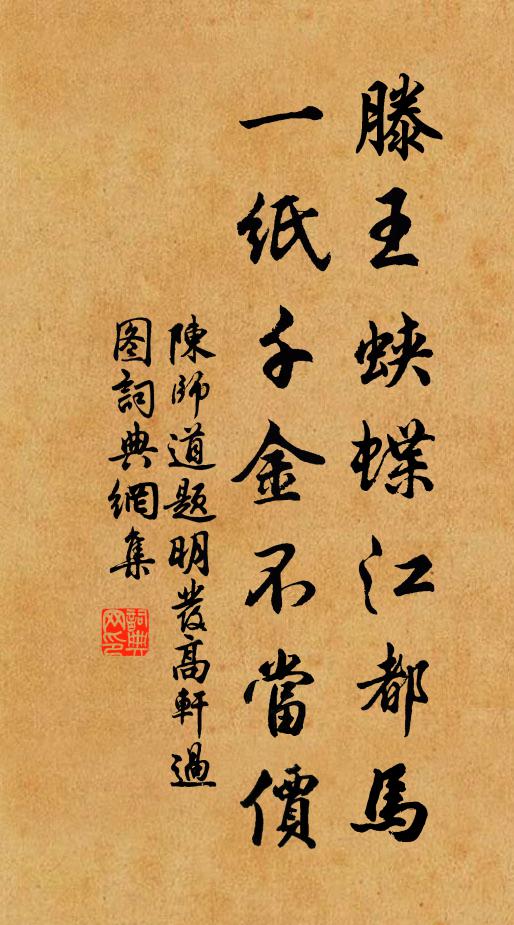 滕王蛺蝶江都馬
一紙千金不當價
陳師道題明發高軒過
图詞典網集
詞典
网印